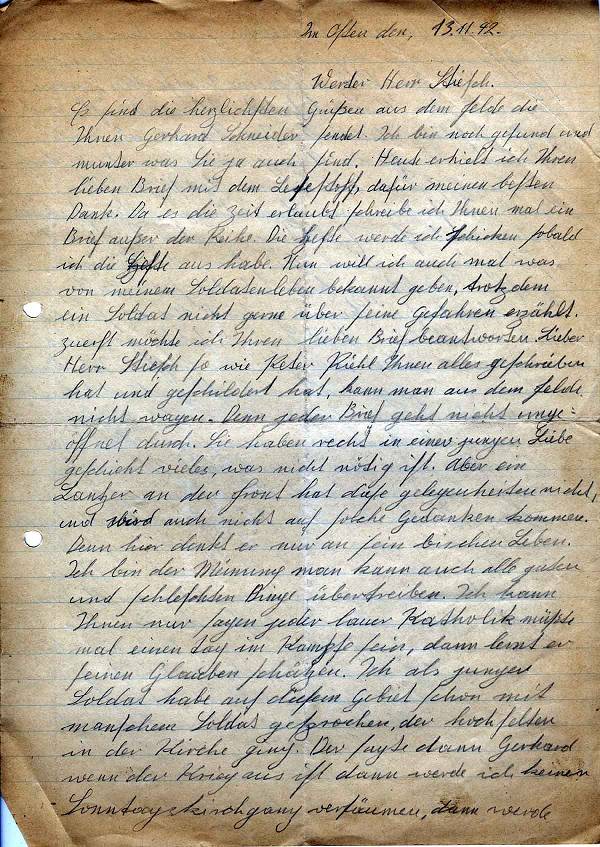 Im Osten den, 13.11.42.
Werder Herr Stiesch.
Es sind die herzlichsten Grüßen aus dem felde die
Ihnen Gerhard Schneider sendet. Ich bin noch gesund und
munter was Sie ja auch sind. Heute erhielt ich Ihren
lieben Brief mit dem Lesestoff, dafür meinen besten
Dank. Da es die Zeit erlaubt schreibe ich Ihnen mal ein
Brief außer der Reihe. Die hefte werde ich schicken sobald
ich die Hefte aus habe. Nun will ich auch mal was
von meinem Soldatenleben bekannt geben, trotz dem
ein Soldat nicht gerne über seine Gefahren erzählt.
zuerst möchte ich Ihren lieben Brief beantworten. Lieber
Herr Stiesch so wie Peter Riehl Ihnen alles geschrieben
hat und geschildert hat, kann man aus dem felde
nicht wagen. Denn jeder Brief geht nicht unge=
öffnet durch. Sie haben recht in einer jungen Liebe
geschieht vieles, was nicht nötig ist. Aber ein
Lanzer an der front hat dafe gelegenheiten nicht,
und wird auch nicht auf solche Gedanken kommen.
Denn hier denkt er nur an sein bischen Leben.
Ich bin der Meinung man kann auch alle guten
und schlechten Dinge übertreiben. Ich kann
Ihnen nur sagen jeder lauer Katholik müßte
mal einen tag im Kampfe sein, dann lernt er
seinen Glauben schätzen. Ich als junger
Soldat habe auf diesem Gebiet schon mit
manschem Soldat gesprochen, der hochselten
in der Kirche ging. Der sagte dann Gerhard
wenn der Krieg aus ist dann werde ich keinen
Sonntagskirchgang versäumen, dann werde